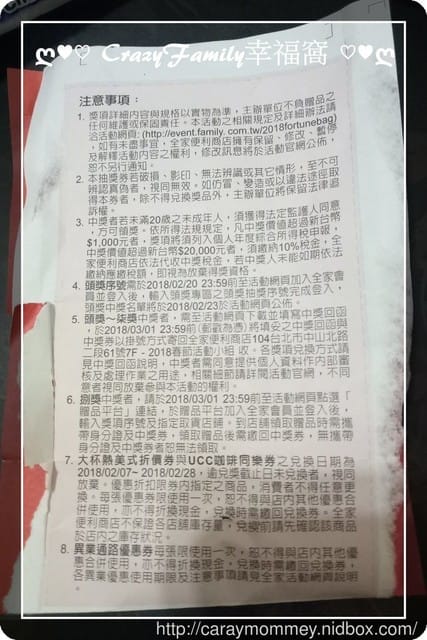 ღ♥♡ CrazyFamily幸福窩 ♡♥ღ
注意事項：
1. 獎項詳細內容與規格以實物為準，主辦單位不負贈品之
任何維護或保固責任。本活動之相關規定及詳細辦法請
洽活動網頁(http://event.family.com.tw/2018fortunebag)
，如有未盡事宜，全家便利商店擁有保留、修改、暫停
及解釋活動內容之權利，修改訊息將於活動官網公佈，
恕不另行通知。
2. 本抽獎券若破損、影印、無法辨識或其它情形，至不可
辨認真偽者，視同無效。如仿冒、變造或以違法途徑取
得本券者，除不得兌換獎品外，主辦單位將保留法律追
訴權。
3. 中獎者若未滿20歲之未成年人，須獲得法定監護人同意
，方可領獎。依所得法規規定，凡中獎價值超過新台幣
$1,000元者，獎項將須列入個人年度綜合所得稅申報，
中獎價值超過新台幣$20,000元者，須繳納10%稅金，全
家便利商店依法代收中獎稅金，若中獎人未能如期依法
繳納應繳稅額，即視為放棄得獎資格。
4. 頭獎序號需於2018/02/20 23:59前至活動網頁加入全家會
員並登入後，輸入頭獎專區之頭獎抽獎序號完成登入，
頭獎中獎名單將於2018/02/23於活動官網公佈。
5. 頭獎～柒獎中獎者，需至活動網頁下載並填寫中獎回函
，於2018/03/01 23:59前(郵戳為憑)將填妥之中獎回函與
中獎券以掛號方式寄回全家便利商店104台北市中山北路
二段61號7F - 2018春節活動小組 收。各獎項兌換方式請
見中獎回函說明，中獎者需同意提供個人資料作內部審
核及處理作業之用途，相關細節請詳閱活動官網，不同
意者視同放棄參與本活動的權利。
6. 捌獎中獎者，請於2018/03/01 23:59前至活動網頁點選「
贈品平台」連結，於贈品平台加入全家會員並登入後，
輸入獎項序號及指定取貨店舖。到店舖領取贈品時需攜
帶身分證及中獎券，領取贈品後需繳回中獎券，無攜帶
身分證及中獎券者恕無法領取。
7. 大杯熱美式折價券與UCC咖啡同樂券之兌換日期為
2018/02/07~2018/02/28，逾兌獎截止日未兌換者，視同
放棄。優惠折扣限券內指定之商品，消費者不得任意更
換。每張優惠券限使用一次，恕不得與店內其他優惠合
併使用，亦不得折換現金，兌換時需繳回兌換券。全家
便利商店不保證各店舖庫存量，兌換前請先確認該商品
於店內之庫存狀況。
8. 異業通路優惠券每張限使用一次，恕不得與店內其他優
惠合併使用，亦不得折換現金，兌換時需繳回兌換券，
各異業優惠使用期限及注意事項請見全家活動網頁說明
。
http://caraymommey.nidbox.com/